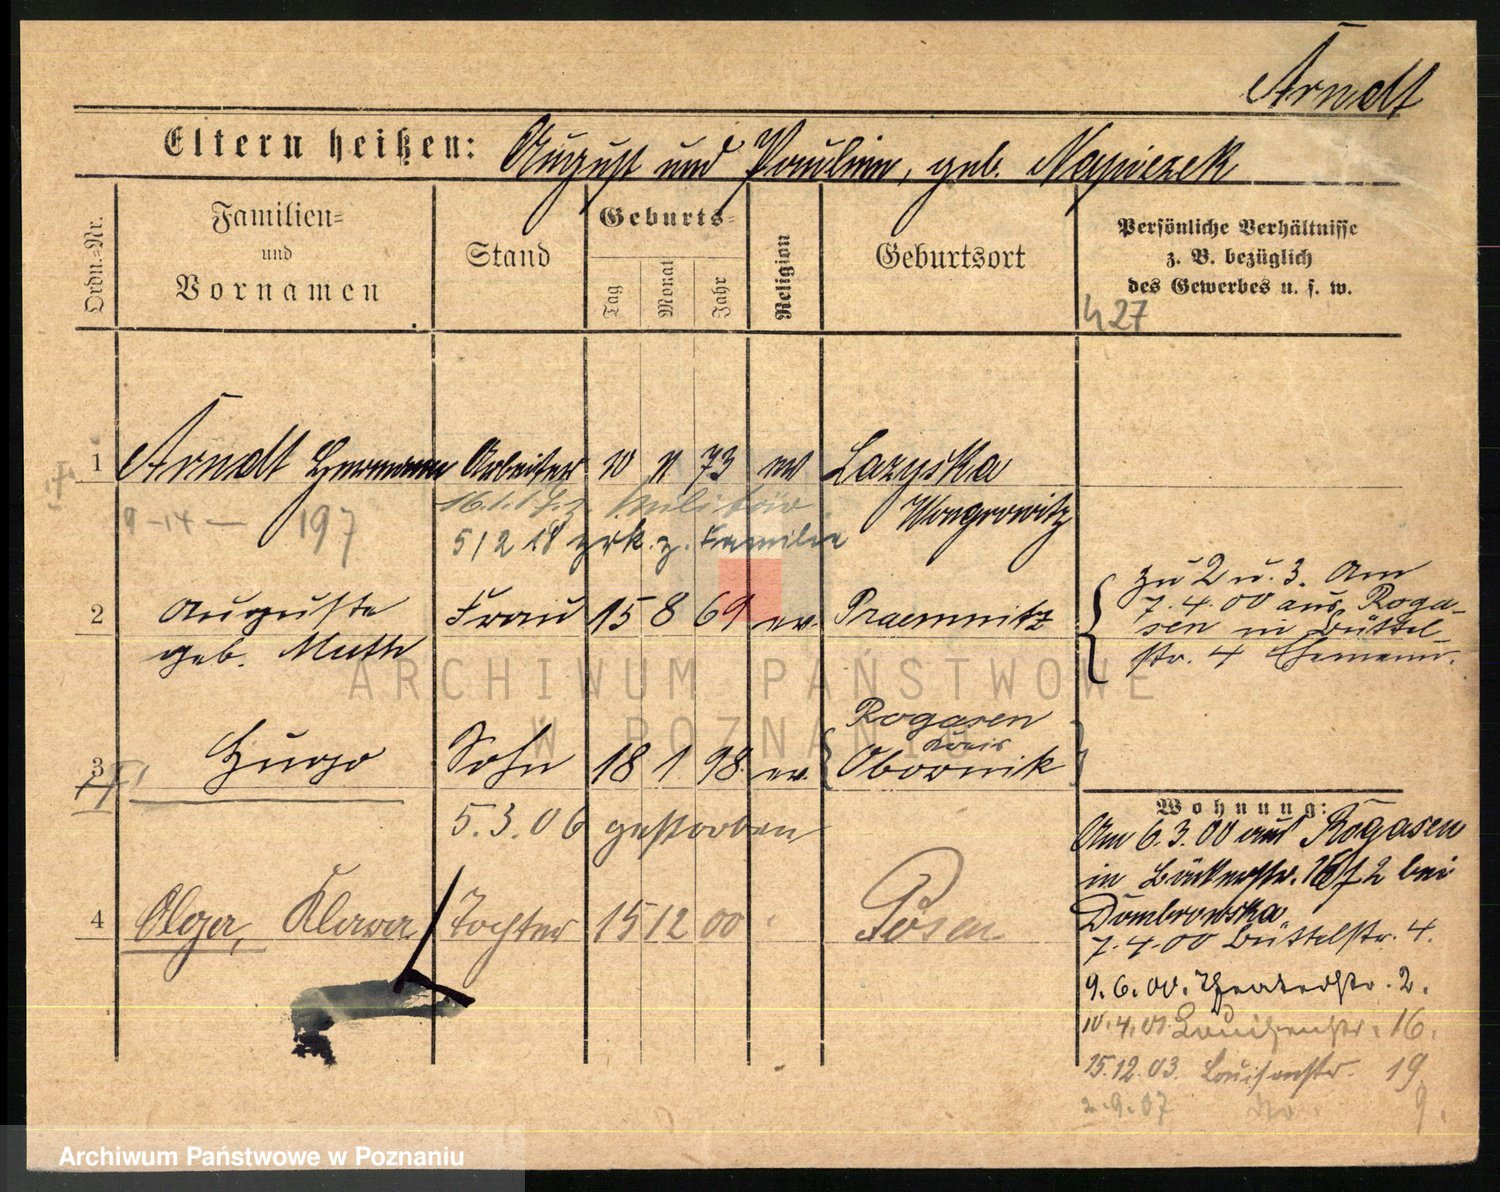 Arndt
Eltern heißen: August und Pauline, geb. Napierek
Ordn.-Nr.
Familien- und Vornamen
Stand
Geburts-
Tag
Monat
Jahr
Religion
Geburtsort
Persönliche Verhältnisse
z. B. bezüglich
des Gewerbes u. s. w.
427
1 Arndt Hermann Arbeiter 10 11 73 ev Lazyska
Wongrowitz
9-14- 197
Militär
5/2 18 zrk. z. Familie
2 Auguste Frau 15 8 69 ev. Praemnitz
geb. Muth
zu 2 u. 3. Am
7.4.00 aus Roga-
sen in Büttel-
str. 4 Ehemann.
3 Hugo Sohn 18 1 98 ev. Rogasen
Kreis
Obornik
5.3.06 gestorben
4 Olga, Klara Tochter 15 12 00 Posen
Wohnung:
Am 6.3.00 aus Rogasen
in Bäckerstr. bei
Dombrowska
7.4.00 Büttelstr. 4.
9.6.00. Theaterstr. 2.
10.4.01. Louisenstr. 16.
15.12.03. Louisenstr. 19
2.9.07 9.
ARCHIWUM PAŃSTWOWE
W POZNANIU
Archiwum Państwowe w Poznaniu